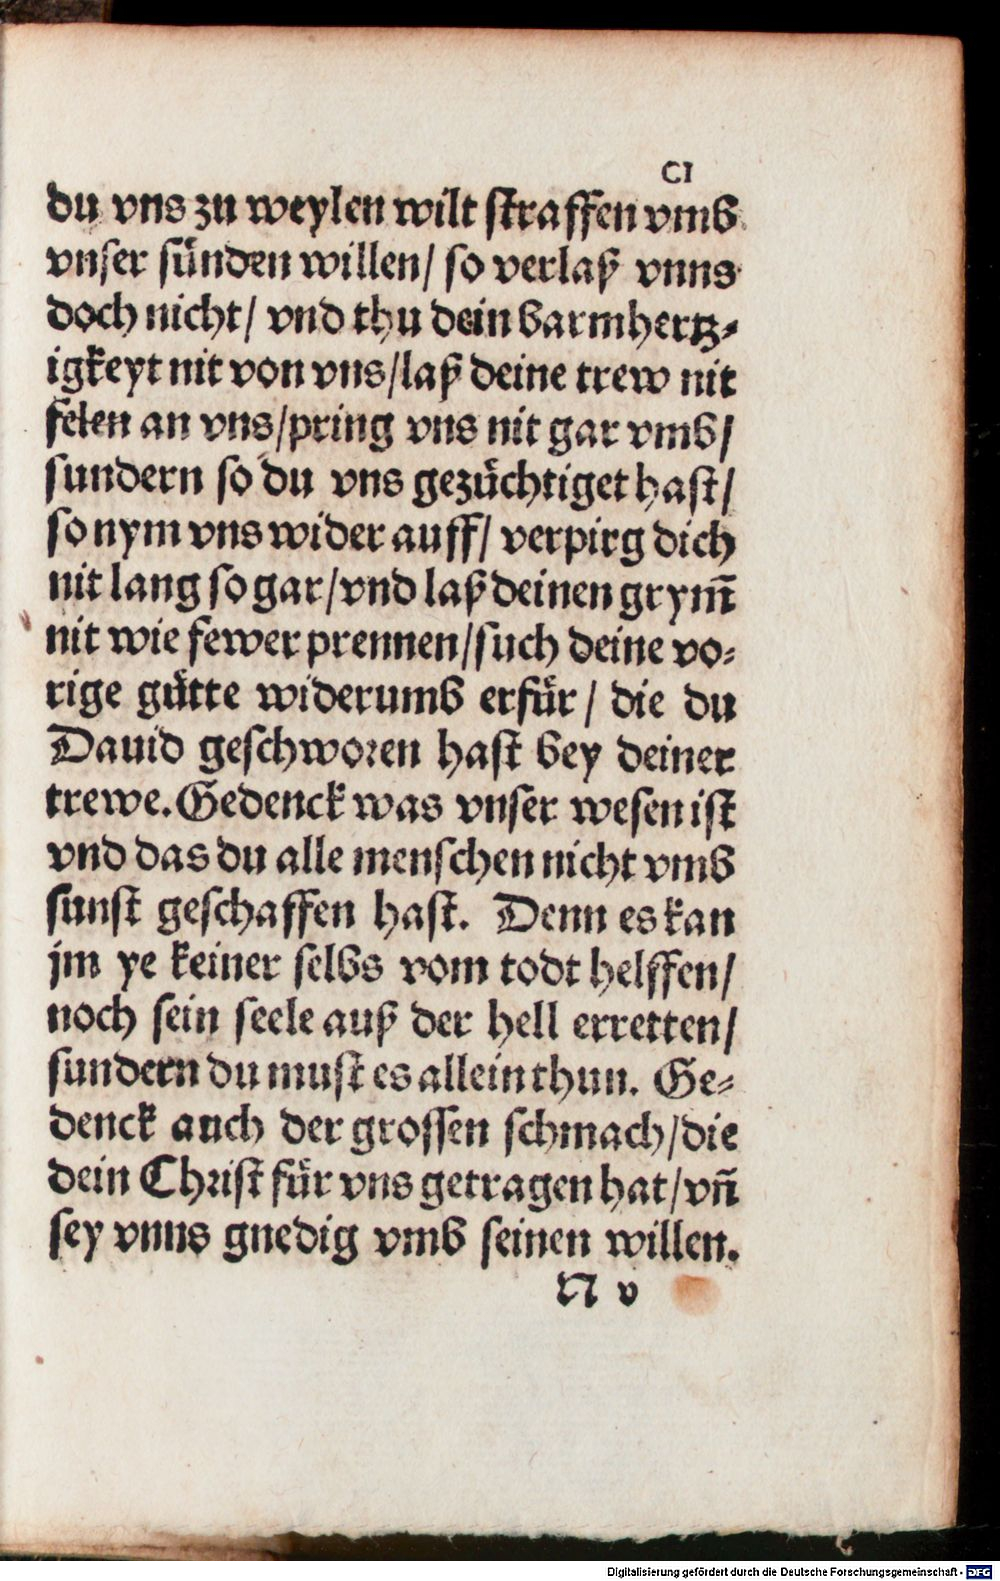 CI
du vns zu weylen wilt straffen vmb
vnser sünden willen/ so verlaß vnns
doch nicht/ vnd thu dein barmhertz⸗
igkeyt nit von vns/laß deine trew nit
felen an vns/pring vns nit gar vmb/
sundern so du vns gezüchtiget hast/
so nym vns wider auff/ verpirg dich
nit lang so gar/vnd laß deinen grym̄
nit wie fewer prennen/such deine vo⸗
rige gütte widerumb erfür/ die du
Dauid geschworen hast bey deiner
trewe. Gedenck was vnser wesen ist
vnd das du alle menschen nicht vmb
sunst geschaffen hast. Denn es kan
jm ye keiner selbs vom todt helffen/
noch sein seele auß der hell erretten/
sundern du must es allein thun. Ge⸗
denck auch der grossen schmach/die
dein Christ für vns getragen hat/vn̄
sey vnns gnedig vmb seinen willen.
N v
Digitalisierung gefördert durch die Deutsche Forschungsgemeinschaft - DFG